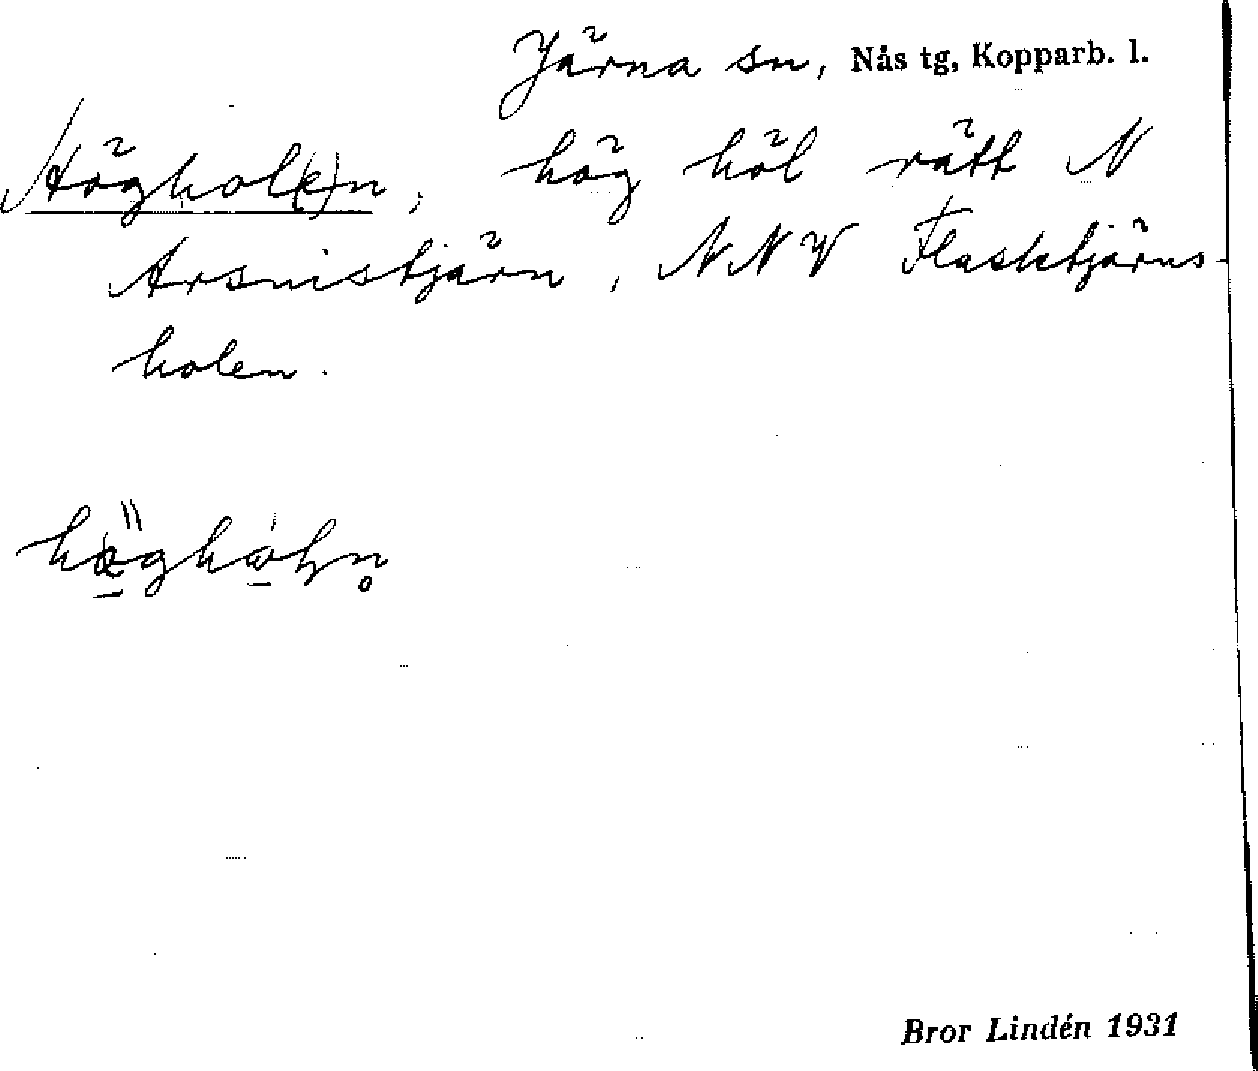 Järna sn, Nås tg, Kopparb. l.
Höghol(e)n, hög höl rätt N
Arsnistjärn, NNV Flasktjärns-
holen.
Bror Lindén 1931